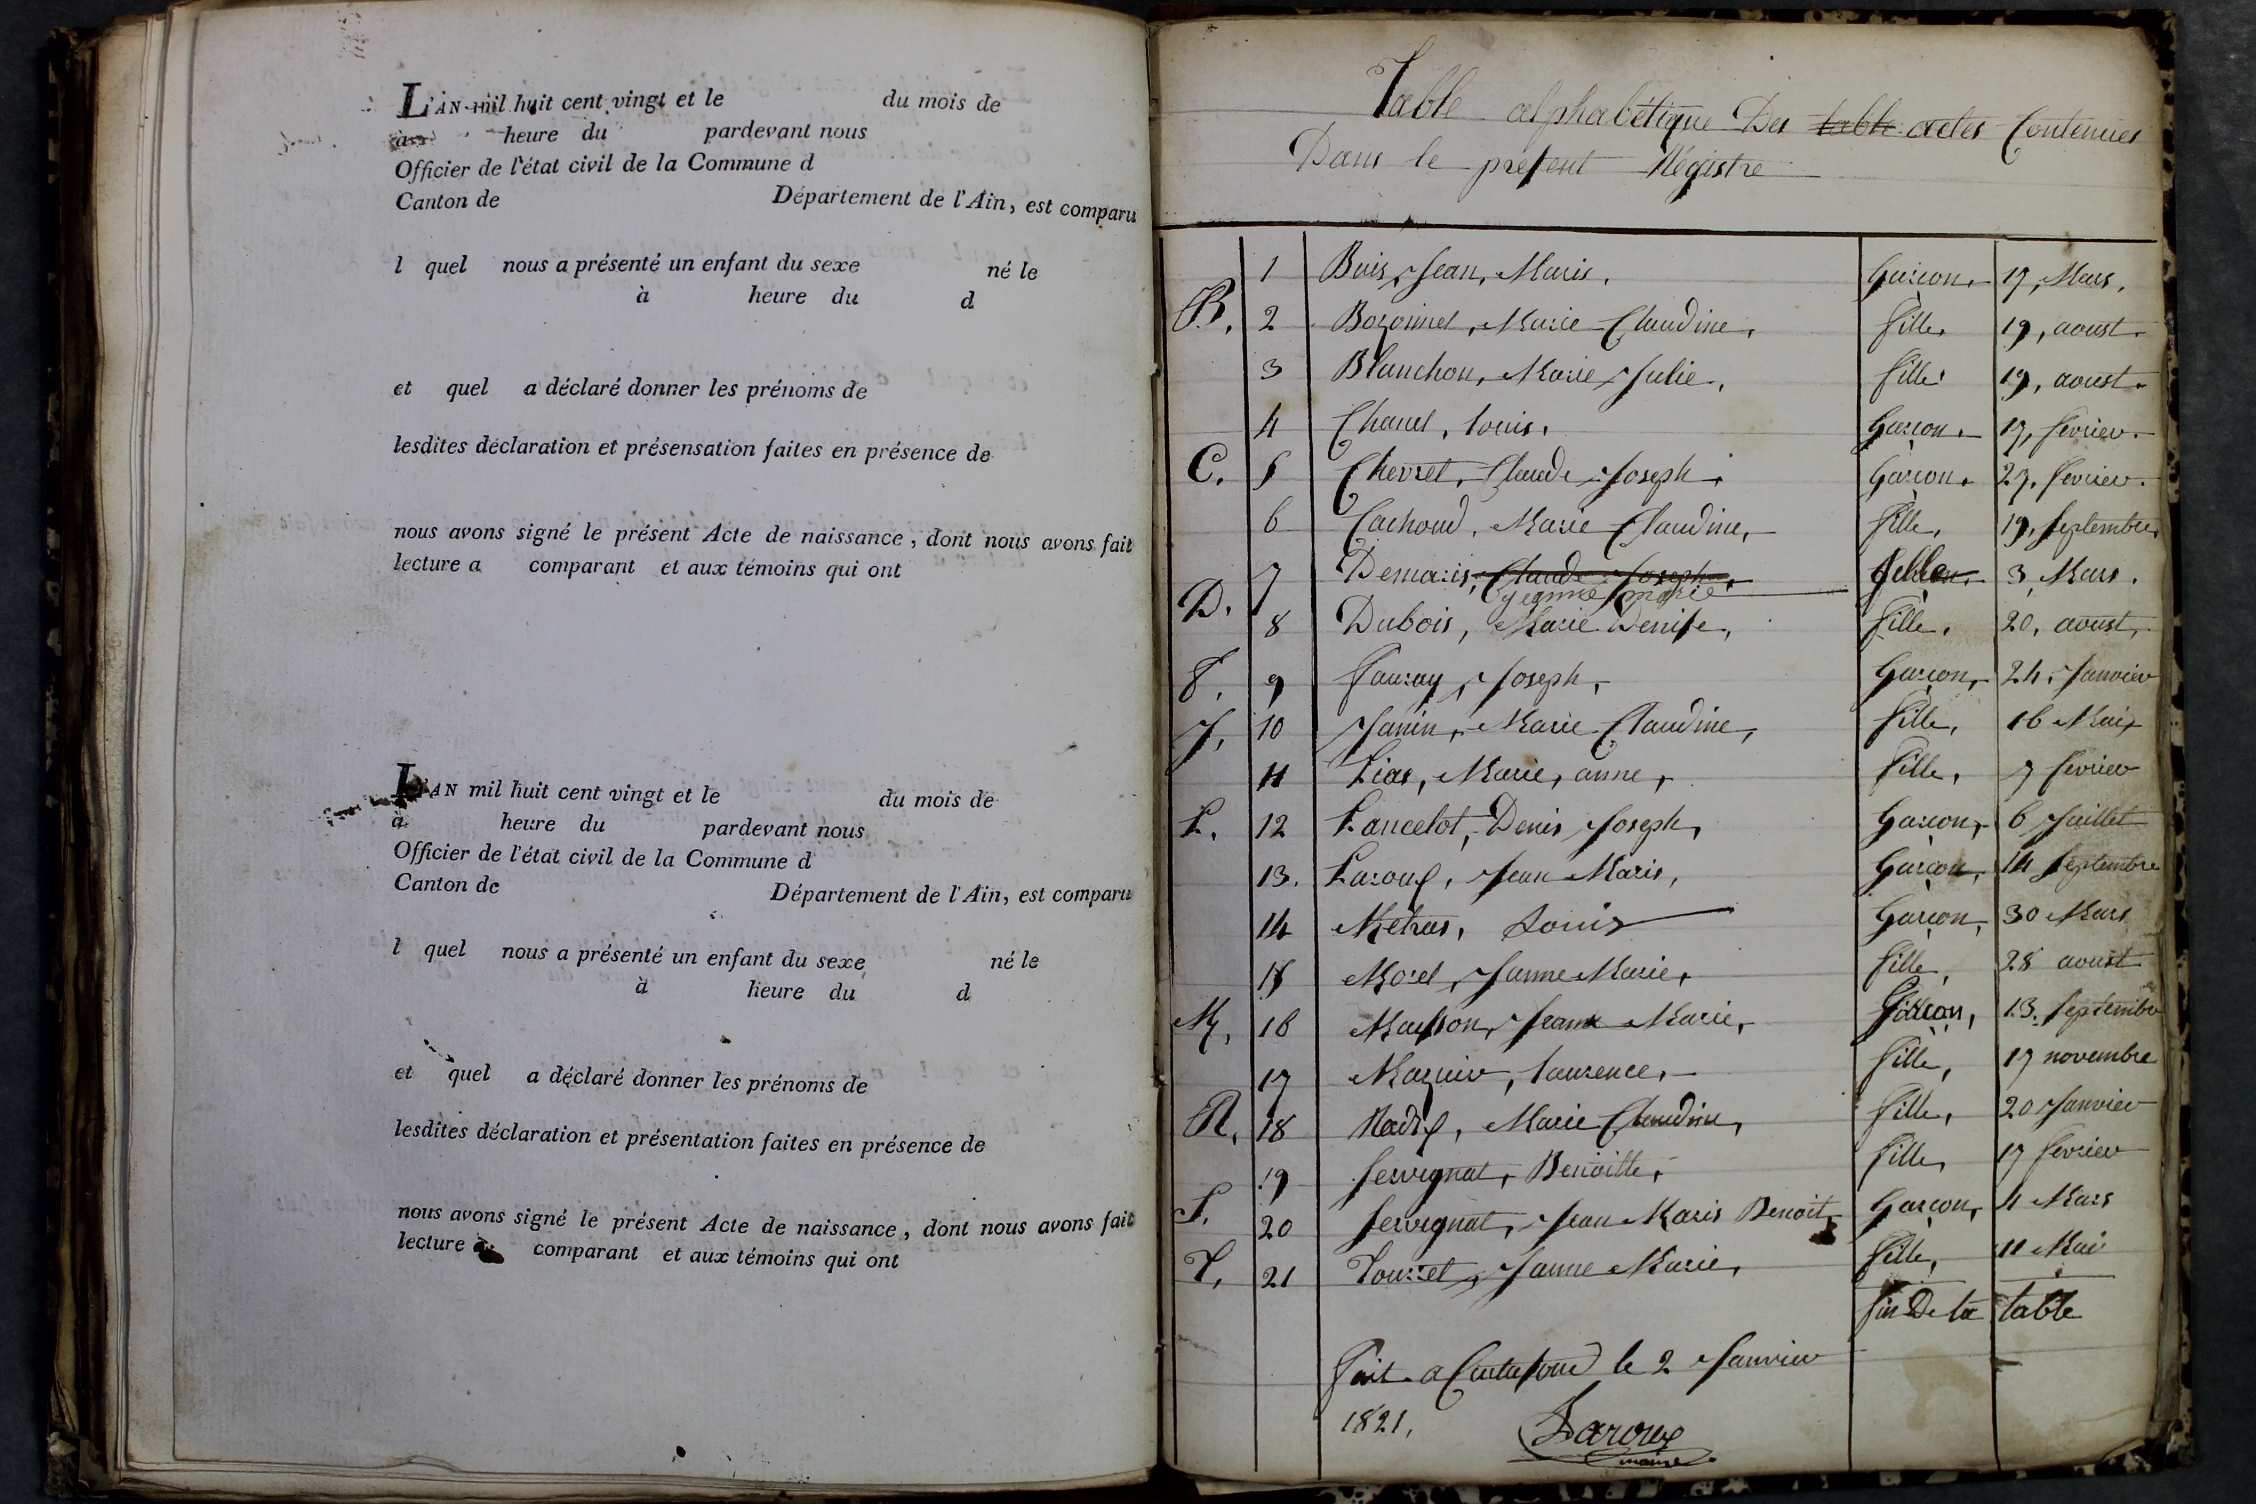 L'AN mil huit cent vingt et le du mois de
à heure du pardevant nous
Officier de l'état civil de la Commune d
Canton de Département de l'Ain, est comparu
l quel nous a présenté un enfant du sexe né le
à heure du d
et quel a déclaré donner les prénoms de
lesdites déclaration et présensation faites en présence de
nous avons signé le présent Acte de naissance, dont nous avons fait
lecture a comparant et aux témoins qui ont
L'AN mil huit cent vingt et le du mois de
à heure du pardevant nous
Officier de l'état civil de la Commune d
Canton de Département de l'Ain, est comparu
l quel nous a présenté un enfant du sexe né le
à heure du d
et quel a déclaré donner les prénoms de
lesdites déclaration et présentation faites en présence de
nous avons signé le présent Acte de naissance, dont nous avons fait
lecture a comparant et aux témoins qui ont
Table alphabétique Des table actes Contenues
Dans le present Régistre
1 Buis, Jean, Marie. Garçon, 17, Mars.
B, 2 Bozonnet, Marie Claudine, fille, 19, aoust.
3 Blanchon, Marie Julie, fille 19, aoust.
4 Chanel, Louis, Garçon, 17, fevrier.
C. 5 Chevret, Claude Joseph, Garçon, 27, fevrier.
6 Cachoud, Marie Claudine, fille, 19, Septembre,
7 Demaris, Claude Joseph, fille, 3, Mars.
jeanne marie
D. 8 Dubois, Marie Denise, fille, 20, aoust,
F. 9 Fauray, Joseph, Garçon, 24, Janvier
J, 10 Janin, Marie Claudine, fille, 16 Mai,
11 Lias, Marie, anne, fille, 7 fevrier
L. 12 Lancelot, Denis Joseph, Garçon, 6 Juillet
13. Laroux, Jean Marie, Garçon, 14 Septembre
14 Metras, Louis Garçon, 30 Mars
15 Morel, Janne Marie, fille, 28 aoust
M, 16 Masson, Jean Marie, Garçon, 13. Septembre
17 Mazuir, Laurence, fille, 17 novembre
R, 18 Radix, Marie Claudine, fille, 20 Janvier
19 Servignat, Benoitte, fille, 17 fevrier
S. 20 Servignat, Jean Marie Benoit, Garçon, 4 Mars
T, 21 Tourret, Janne Marie, fille, 11 Mai
fin De la table
Fait a Curtafond le 2 Janvier
1821,
Laroux
maire